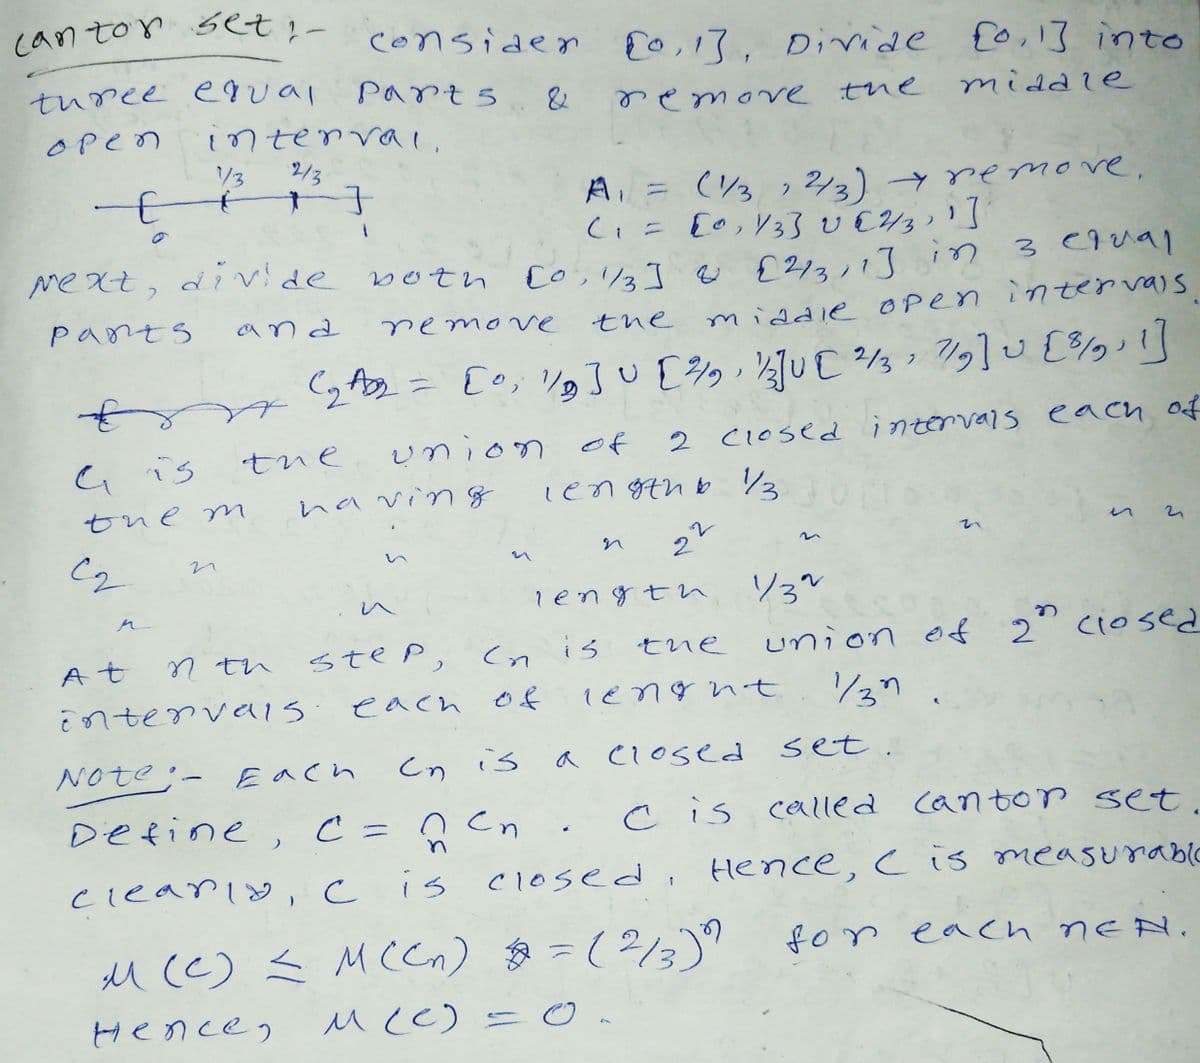 Cantor set :- Consider [0,1]. Divide [0,1] into
three equal parts & remove the middle
open interval.
1/3 2/3
0 1
A₁ = (1/3, 2/3) → remove.
C₁ = [0, 1/3] ∪ [2/3, 1]
Next, divide both [0, 1/3] & [2/3, 1] in 3 equal
parts and remove the middle open intervals.
C₂ = [0, 1/9] ∪ [2/9, 1/3] ∪ [2/3, 7/9] ∪ [8/9, 1]
C₁ is the union of 2 closed intervals each of
them having length 1/3
C₂ " " " " 2² " " " "
" " length 1/3²
At nth step, Cn is the union of 2ⁿ closed
intervals each of lenght 1/3ⁿ.
Note :- Each Cn is a closed set.
Define, C = ∩ Cn. C is called Cantor set.
n
Clearly, C is closed, Hence, C is measurable
M(C) ≤ M(Cn) = (2/3)ⁿ for each n∈N.
Hence, M(C) = 0.